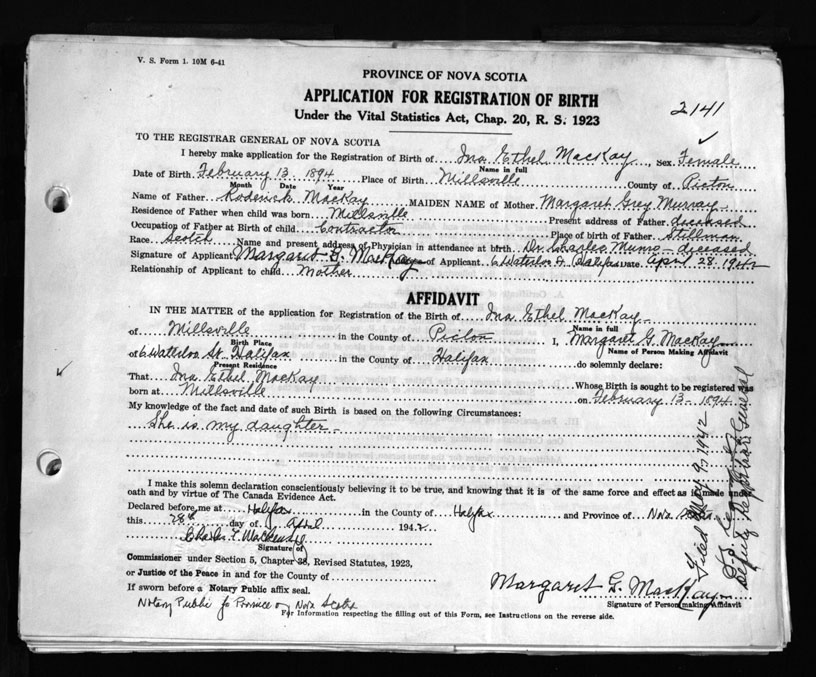 V. S. Form 1. 10M 6-41
PROVINCE OF NOVA SCOTIA
APPLICATION FOR REGISTRATION OF BIRTH
2141
Under the Vital Statistics Act, Chap. 20, R. S. 1923
TO THE REGISTRAR GENERAL OF NOVA SCOTIA
I hereby make application for the Registration of Birth of Ina Ethel MacKay, Sex Female
Name in full
Date of Birth February 13 1894 Place of Birth Millsville County of Pictou
Month Date Year
Name of Father Roderick MacKay MAIDEN NAME of Mother Margaret Grey Murray
Residence of Father when child was born Millsville Present address of Father deceased
Occupation of Father at Birth of child Contractor Place of birth of Father Stillman
Race Scotch Name and present address of Physician in attendance at birth Dr. Charles Munro - deceased
Signature of Applicant Margaret G. MacKay of Applicant 6 Waterloo St Halifax Date April 28 1942
Relationship of Applicant to child Mother
AFFIDAVIT
IN THE MATTER of the application for Registration of the Birth of Ina Ethel MacKay
Name in full
of Millsville in the County of Pictou I, Margaret G. MacKay
Birth Place Name of Person Making Affidavit
of 6 Waterloo St. Halifax in the County of Halifax do solemnly declare:
Present Residence
That Ina Ethel MacKay Whose Birth is sought to be registered was
born at Millsville on February 13 - 1894
My knowledge of the fact and date of such Birth is based on the following Circumstances:
She is my daughter -
I make this solemn declaration conscientiously believing it to be true, and knowing that it is of the same force and effect as if made under
oath and by virtue of The Canada Evidence Act.
Declared before me at Halifax in the County of Halifax and Province of Nova Scotia
this 28th day of April 1942
Charles F. MacKenzie
Signature of
Commissioner under Section 5, Chapter 38, Revised Statutes, 1923,
or Justice of the Peace in and for the County of
If sworn before a Notary Public affix seal.
Margaret G. MacKay
Signature of Person making Affidavit
Notary Public for Province of Nova Scotia
For Information respecting the filling out of this Form, see Instructions on the reverse side.
Filed May 9, 1942
Deputy Registrar General